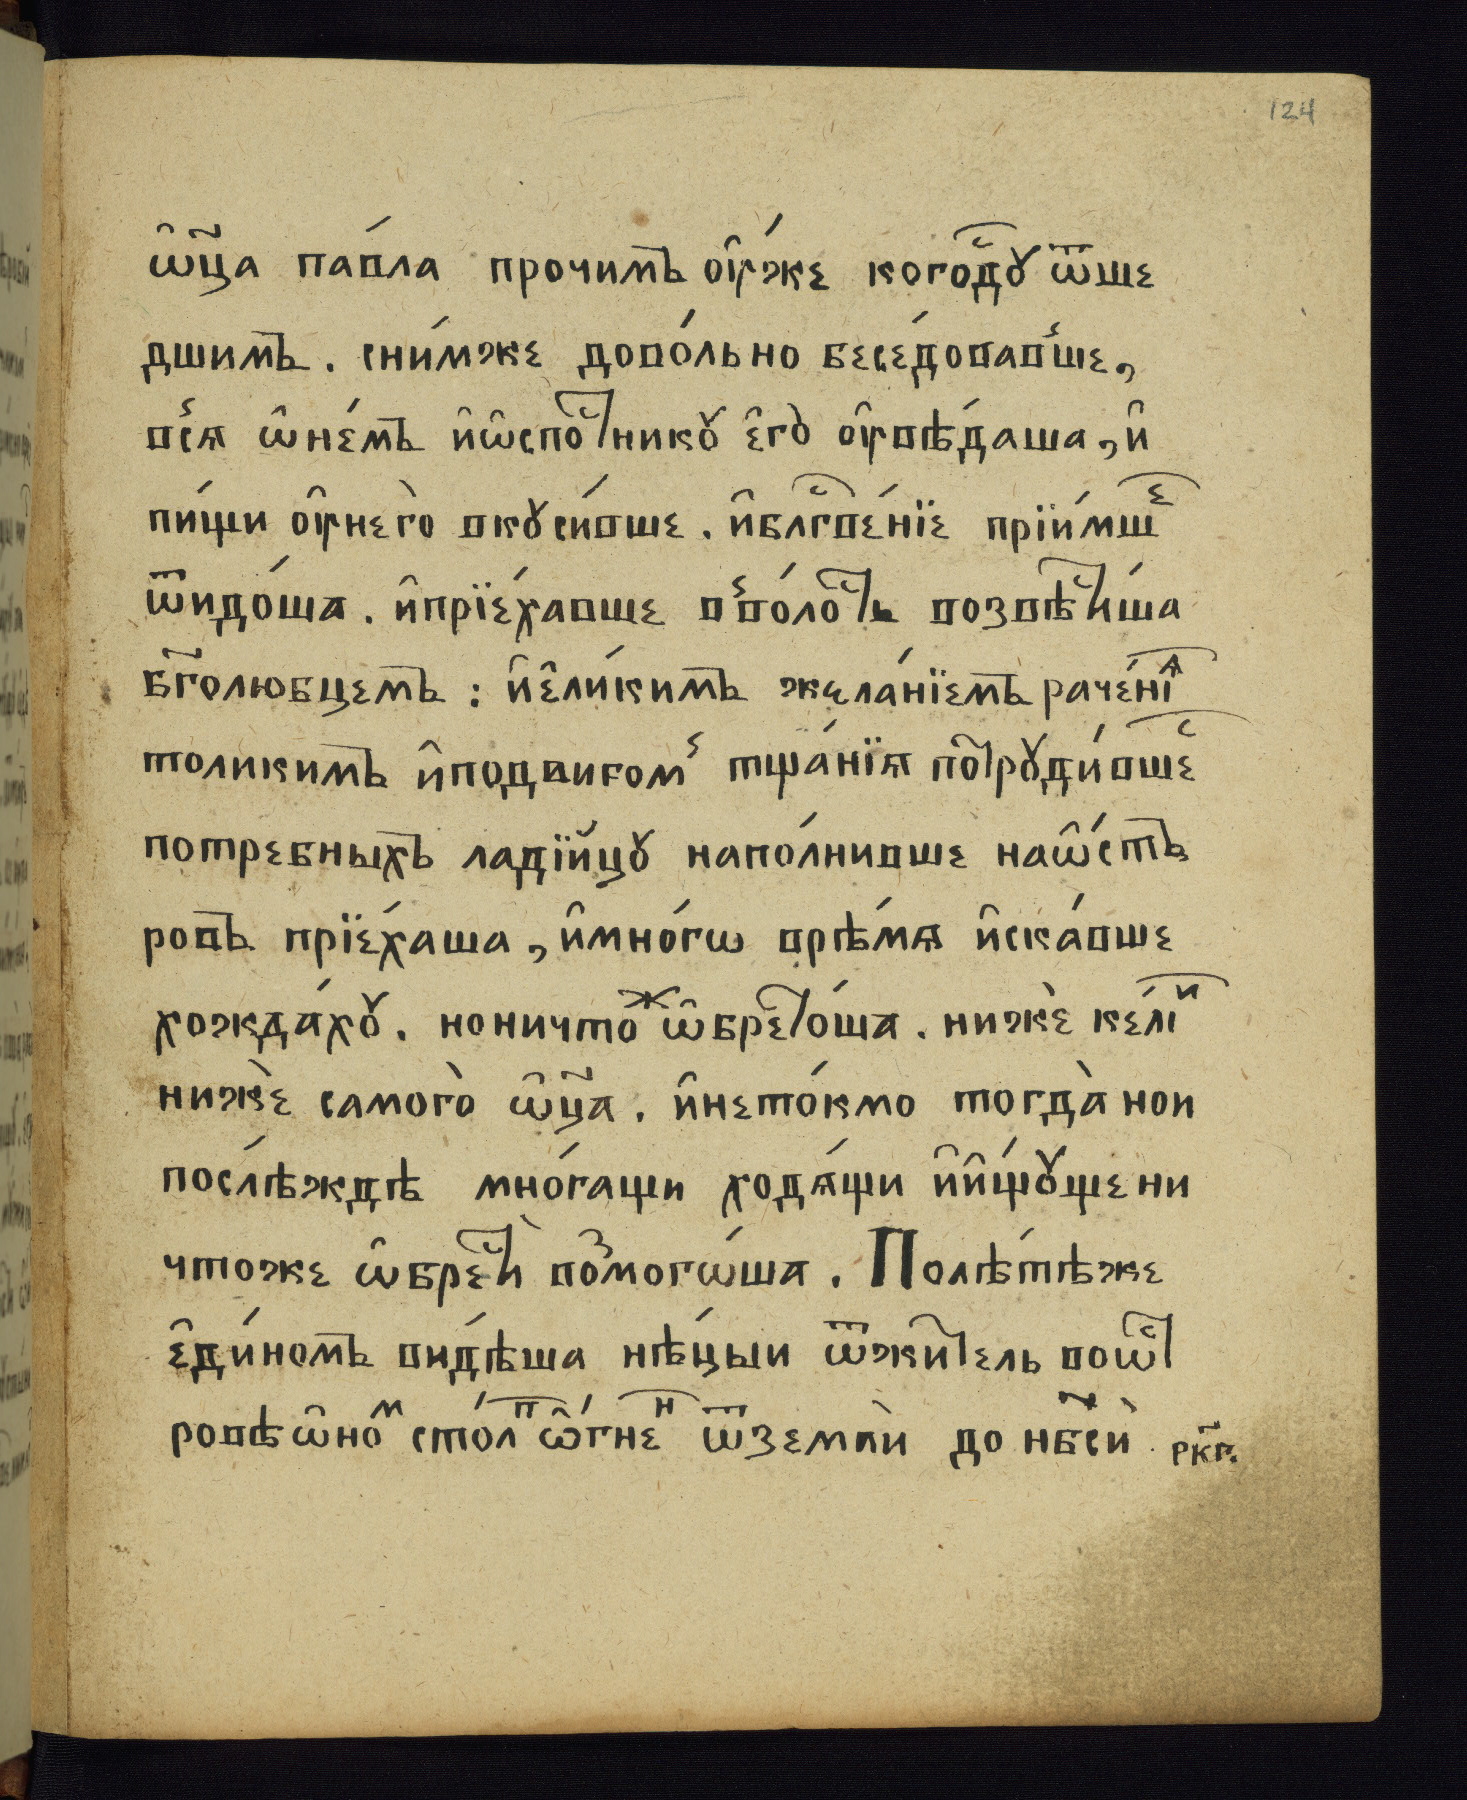 124
ѡ҆ц҃а па́вла прочимъ ѹ҆́же когод̾ꙋ ѿше
дшимъ. сни́мже дово́льно бесе́довавше,
всѧ ѡ҆не́мъ и҆ѡспо́стникꙋ є҆го̀ ѹ҆вѣ́даша, и҆
пи́щи ѹ҆него̀ вкꙋси́вше. и҆блгⷭ҇ве́нїе прїи́мше
ѿидо́ша. и҆прїе́хавше в̾во́лость возвѣсти́ша
бг҃олюбцемъ: и҆є҆ли́кимъ жела́нїемъ раче́нїѧ
толикимъ и҆подвигом̾ тща́нїѧ потрꙋди́вшесѧ
потребныхъ ладїи́цꙋ напо́лнивше наѡ҆́стъ
ровъ прїе́хаша, и҆мно́гѡ врѣ́мѧ и҆ска́вше
хожда́хꙋ. ноничтоⷤ ѡ҆брето́ша. нижѐ ке́лїи
нижѐ самого̀ ѡ҆ц҃а. и҆нето́кмо тогда̀ нои
послѣ́ждѣ мно́гащи ходѧ́щи и҆и҆́щꙋще ни
чтоже ѡ҆брестѝ воⷥмого́ша. Полѣ́тѣже
є҆ди́номъ ви́дѣша нѣ́цыи ѿжи́тель воѡ҆ст
ровѣѡ҆ноⷨ сто́лⷫ ѡ҆́гнеⷩ ѿземлѝ до нб҃сѝ
рк҃г.